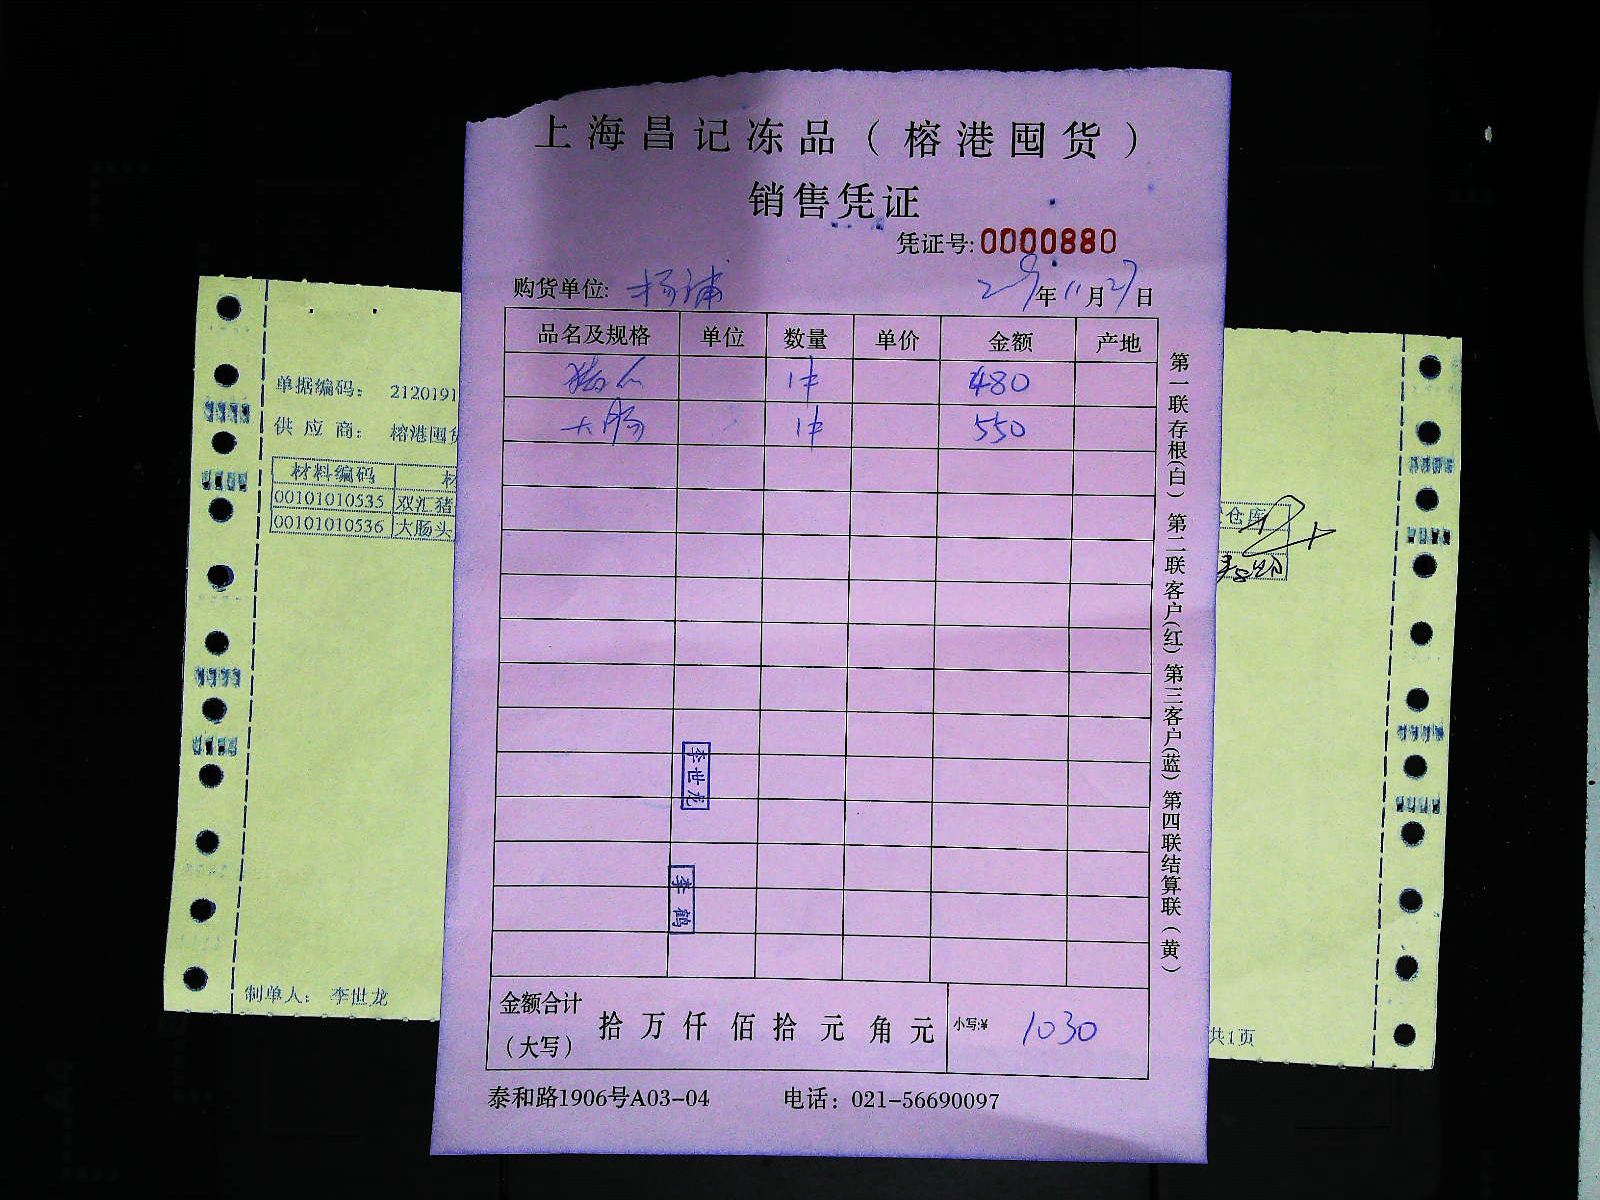 上海昌记冻品（榕港囤货）
销售凭证
凭证号:0000880
购货单位: 杨浦 年11月27日
品名及规格 单位 数量 单价 金额 产地
1件 480
大肠 1件 550
李世龙
李鹤
金额合计（大写） 拾万仟佰拾元角元 小写:¥ 1030
泰和路1906号A03-04 电话：021-56690097
第一联存根(白)第二联客户(红)第三客户(蓝)第四联结算联(黄)
单据编码： 2120191
供应商： 榕港囤货
材料编码 材
00101010535 双汇猪
00101010536 大肠头
仓库
制单人： 李世龙
共1页